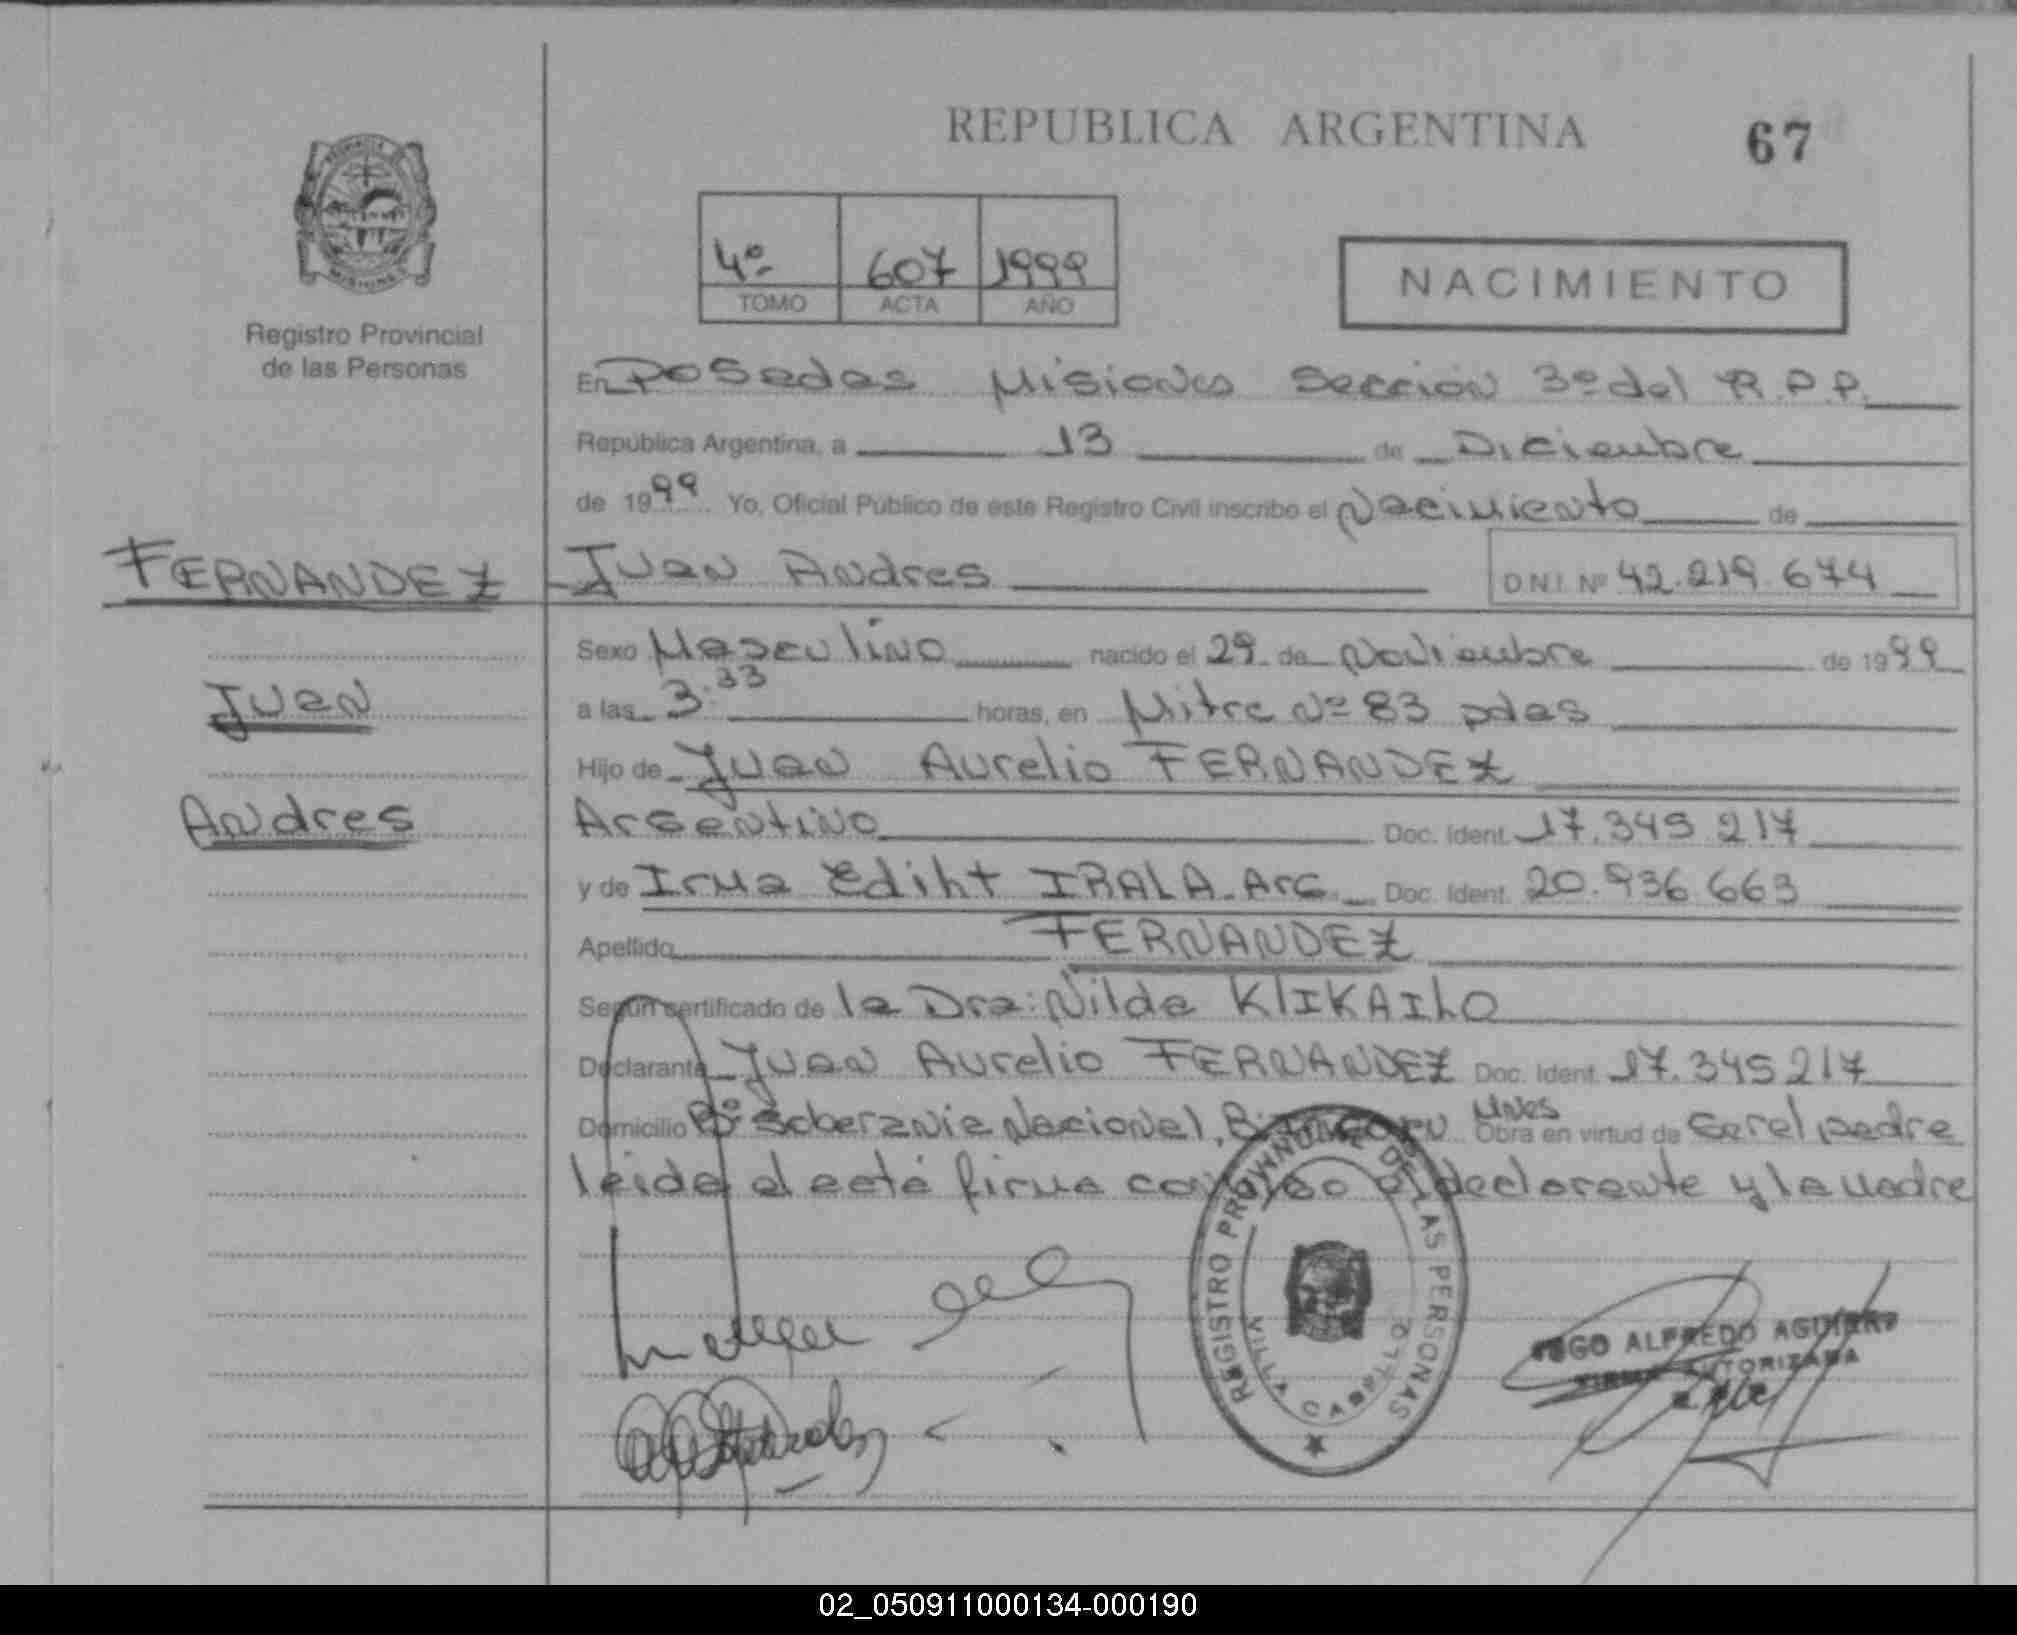 REPUBLICA ARGENTINA
67
4º 607 1999
TOMO ACTA AÑO
NACIMIENTO
Registro Provincial
de las Personas
En Posadas Misiones Sección 3º del R.P.P.
República Argentina, a 13 de Diciembre
de 1999 Yo, Oficial Público de este Registro Civil inscribo el Nacimiento de
FERNANDEZ Juan Andres D.N.I. Nº 42.219.674
Sexo Masculino nacido el 29 de Noviembre de 1999
Juan
a las 3.33 horas, en Mitre Nº 83 pdas
Hijo de Juan Aurelio FERNANDEZ
Andres
Argentino Doc. Ident. 17.345.217
y de Irma Ediht IRALA. Arg. Doc. Ident. 20.936.663
Apellido FERNANDEZ
Según certificado de la Dra: Nilda KLIKAILO
Declarante Juan Aurelio FERNANDEZ Doc. Ident. 17.345.217
Domicilio Bº Soberania Nacional, Mnes Obra en virtud de ser el padre
leida el acta firma el declarante y la madre
REGISTRO PROVINCIAL DE LAS PERSONAS
VILLA CABELLO
ALFREDO
AUTORIZADA
02_050911000134-000190